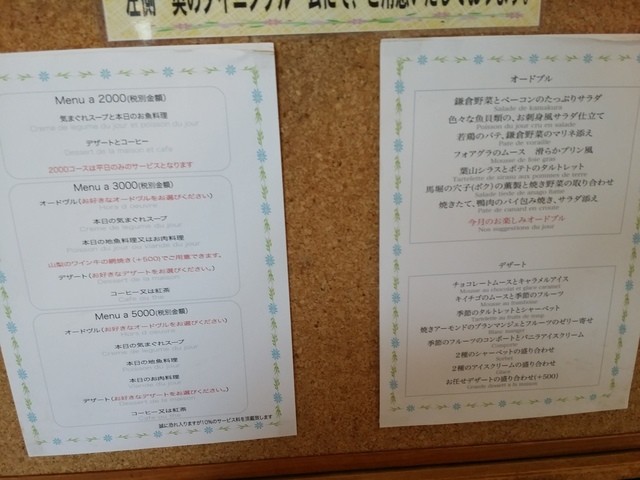 左側 奥のダイニングルームにて、ご用意いたしております。
Menu a 2000(税別金額)
気まぐれスープと本日のお魚料理
デザートとコーヒー
2000コースは平日のみのサービスとなります
Menu a 3000(税別金額)
オードヴル(お好きなオードヴルをお選びください)
本日の気まぐれスープ
Crème de legume du jour
本日の地魚料理又はお肉料理
山梨のワイン牛の網焼き(+500)でご用意できます。
デザート(お好きなデザートをお選びください。)
コーヒー又は紅茶
Menu a 5000(税別金額)
オードヴル(お好きなオードヴルをお選びください)
本日の気まぐれスープ
Crème de legume du jour
本日の地魚料理
本日のお肉料理
デザート(お好きなデザートをお選びください。)
コーヒー又は紅茶
誠に恐れ入りますが10%のサービス料を頂戴致します
オードブル
鎌倉野菜とベーコンのたっぷりサラダ
Salade de kamakura
色々な魚貝類の、お刺身風サラダ仕立て
Poisson du jour cru en salade
若鶏のパテ、鎌倉野菜のマリネ添え
Pate de volaille
フォアグラのムース 滑らかプリン風
Mousse de foie gras
葉山シラスとポテトのタルトレット
Tartelette de sirasu aux pommes de terre
馬堀の穴子(ボク)の薫製と焼き野菜の取り合わせ
Salade tiede de anago fume
焼きたて、鴨肉のパイ包み焼き、サラダ添え
Pate de canard en croute
今月のお楽しみオードブル
Nos suggestions du jour
デザート
チョコレートムースとキャラメルアイス
Mousse au chocolat et glace caramel
キイチゴのムースと季節のフルーツ
Mousse au framboise
季節のタルトレットとシャーベット
焼きアーモンドのブランマンジェとフルーツのゼリー寄せ
Blanc manger
季節のフルーツのコンポートとバニラアイスクリーム
Compote
2種のシャーベットの盛り合わせ
Sorbet
2種のアイスクリームの盛り合わせ
Glace
お任せデザートの盛り合わせ(+500)
Grande dessert a la maison